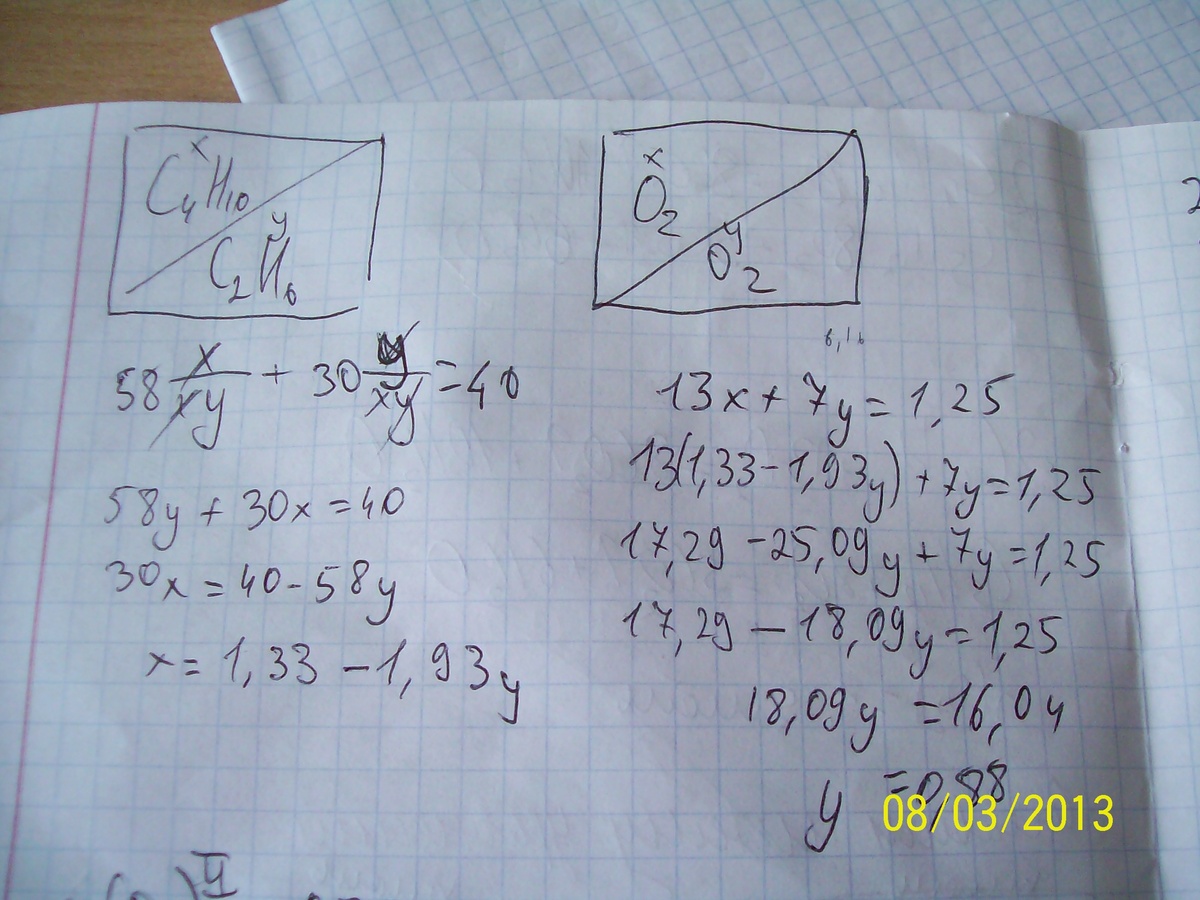 C₄H₁₀ x
C₂H₆ y
58 x/xy + 30 y/xy = 40
58y + 30x = 40
30x = 40 - 58y
x = 1,33 - 1,93y
O₂ x
O₂ y
13x + 7y = 1,25
13(1,33 - 1,93y) + 7y = 1,25
17,29 - 25,09y + 7y = 1,25
17,29 - 18,09y = 1,25
18,09y = 16,04
y = 0,88
08/03/2013
2